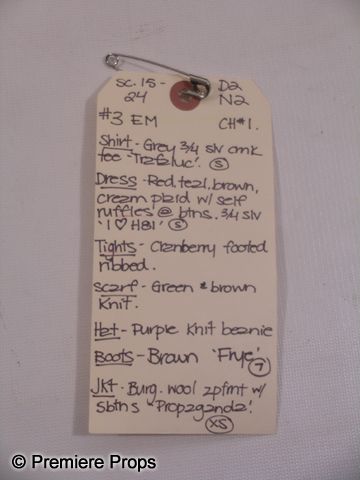 SC. 15 - D2
24 N2
#3 EM CH#1.
Shirt - Grey 3/4 slv cmk
tee 'Trafaluc'. (S)
Dress - Red, teal, brown,
cream plaid w/ self
ruffles @ btns. 3/4 slv
'I ♡ H81' (S)
Tights - Cranberry footed
ribbed.
Scarf - Green & brown
Knit.
Hat - Purple Knit beanie
Boots - Brown 'Frye' (7)
Jkt - Burg. wool zpfrnt w/
5btns "Propaganda'.
(XS)
© Premiere Props